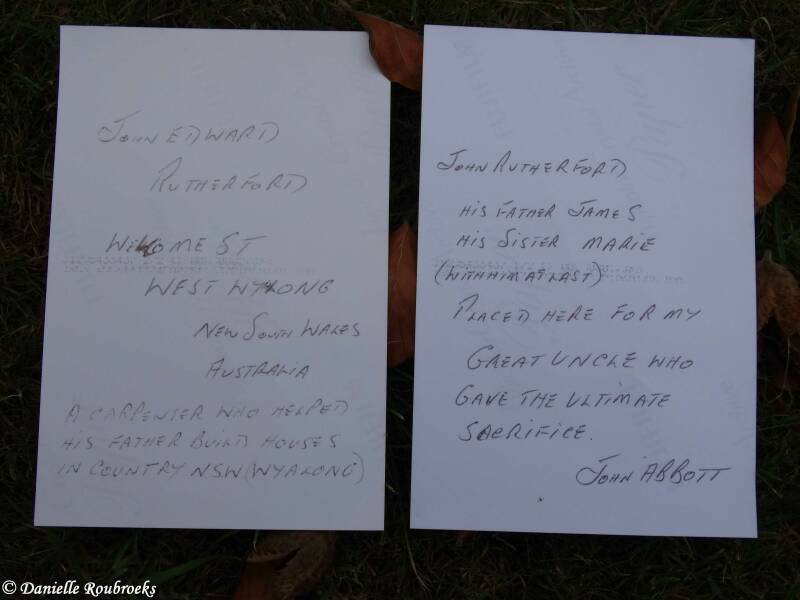 JOHN EDWARD
RUTHERFORD
WELCOME ST
WEST WYALONG
NEW SOUTH WALES
AUSTRALIA
A CARPENTER WHO HELPED
HIS FATHER BUILD HOUSES
IN COUNTRY NSW (WYALONG)
JOHN RUTHERFORD
HIS FATHER JAMES
HIS SISTER MARIE
(WITH HIM AT LAST)
PLACED HERE FOR MY
GREAT UNCLE WHO
GAVE THE ULTIMATE
SACRIFICE.
JOHN ABBOTT
© Danielle Roubroeks